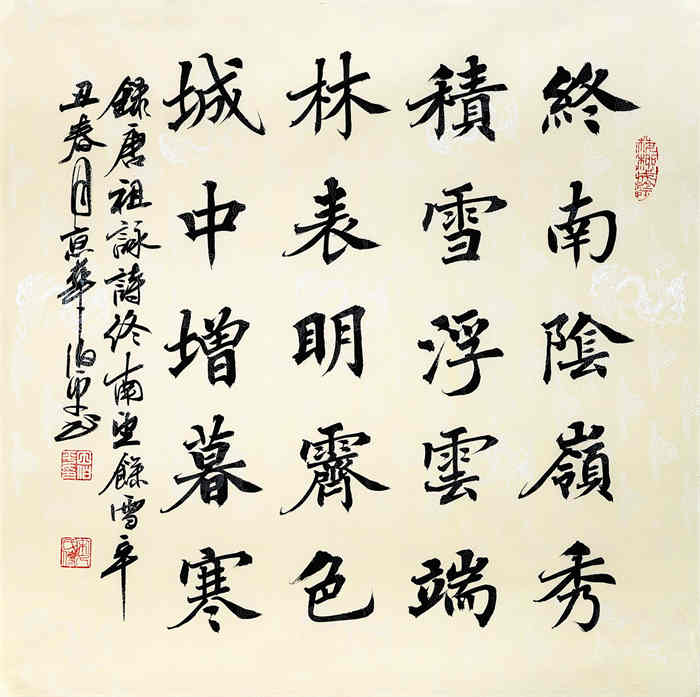 終南陰嶺秀
積雪浮雲端
林表明霽色
城中增暮寒
録唐祖詠詩終南望餘雪辛
丑春月京華